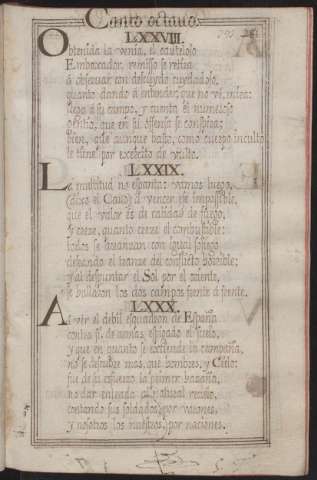 Canto octauo.
LXXVIII.
Obtenida la venia, el cauteloso
Embaxador, remisso se retira
á obseruar con descuydo cuydadoso,
quanto dando á entender, que no vé, mira:
llega á su campo, y cuenta el numeroso
gentio, que en su offensa se conspira;
bien, que aunque basto, como cuerpo inculto
le tiene por exercito de vulto.
LXXIX.
La multitud no espanta: vamos luego,
(dixo el Cauo) á vencer esse impossible,
que el valor és de calidad de fuego,
y crece, quanto crece el combustible:
todos se auanzan con igual sosiego
deseando el trance del conflicto horrible;
y al despuntar el Sol por el oriente,
se hallaron los dos campos frente á frente.
LXXX.
Al ver el debil esquadron de España
contra si de armas, espigado el suelo,
y que en quanto se extiende la campaña,
no se descubre mas, que hombres, y Cielo:
fue de su esfuerzo la primer hazaña,
no dar entrada al natural recelo,
contando sus soldados, por varones,
y nosotros los nuestros, por naciones.